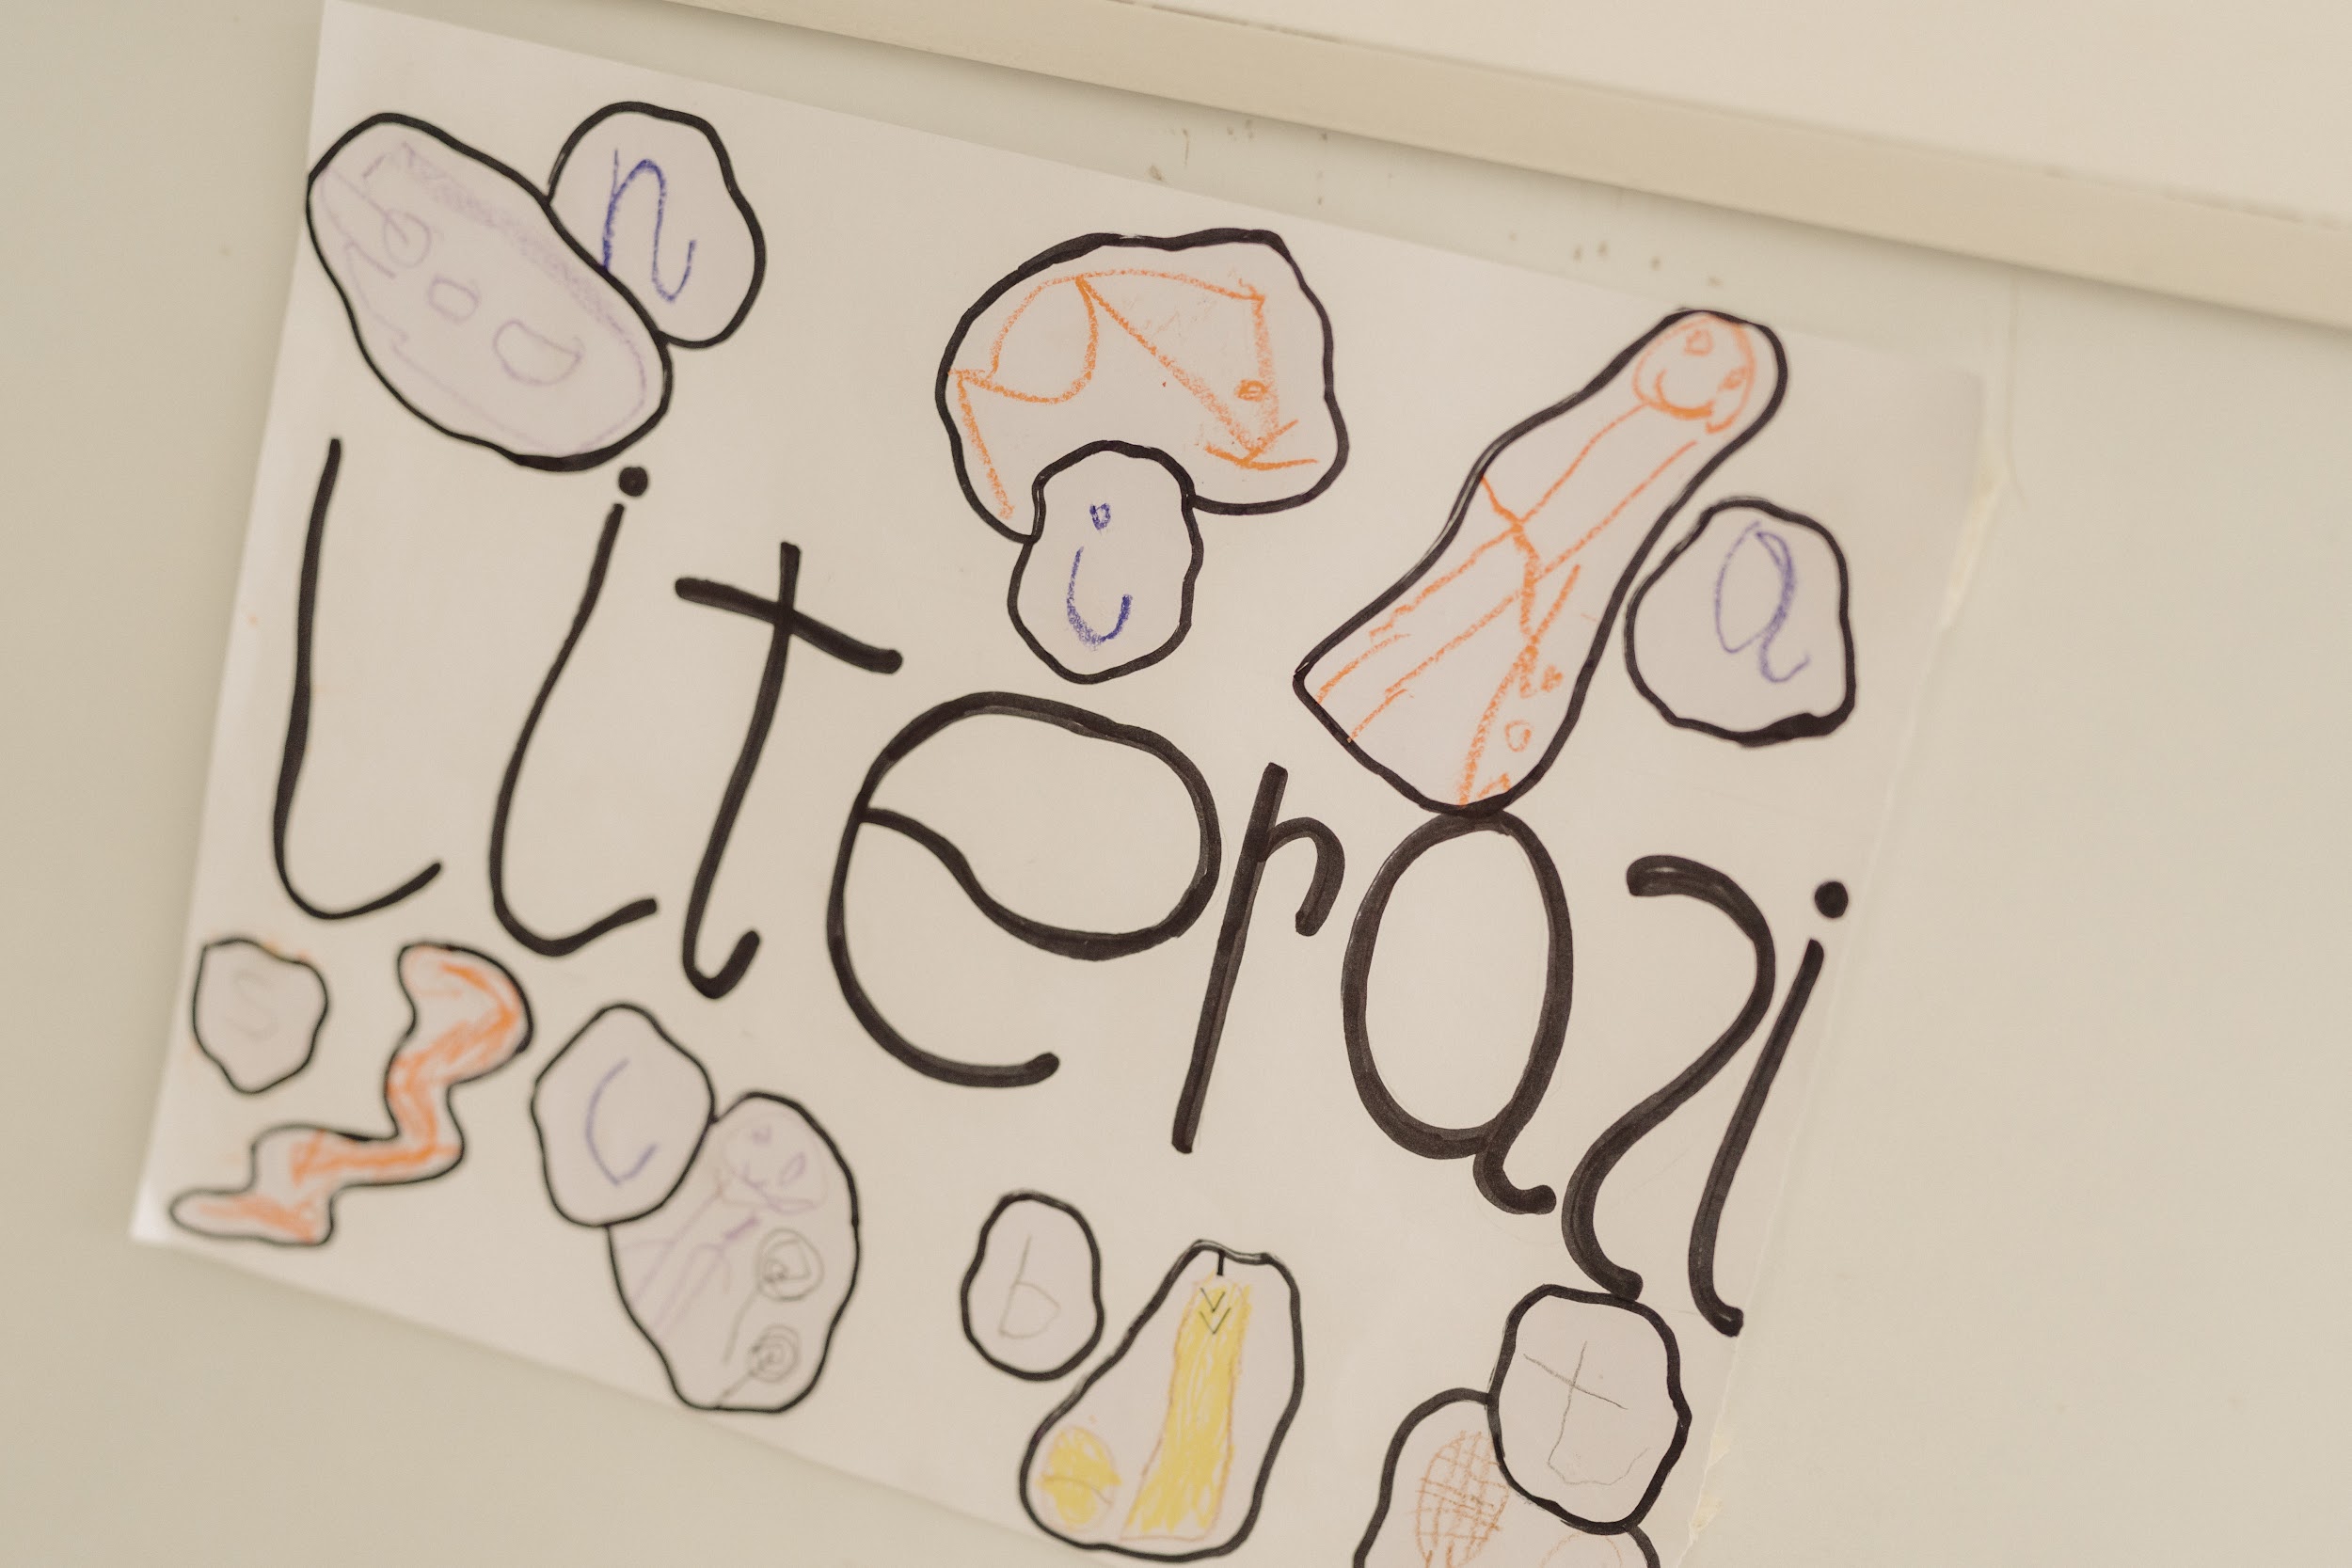 n
i
a
literasi
s
c
b
t